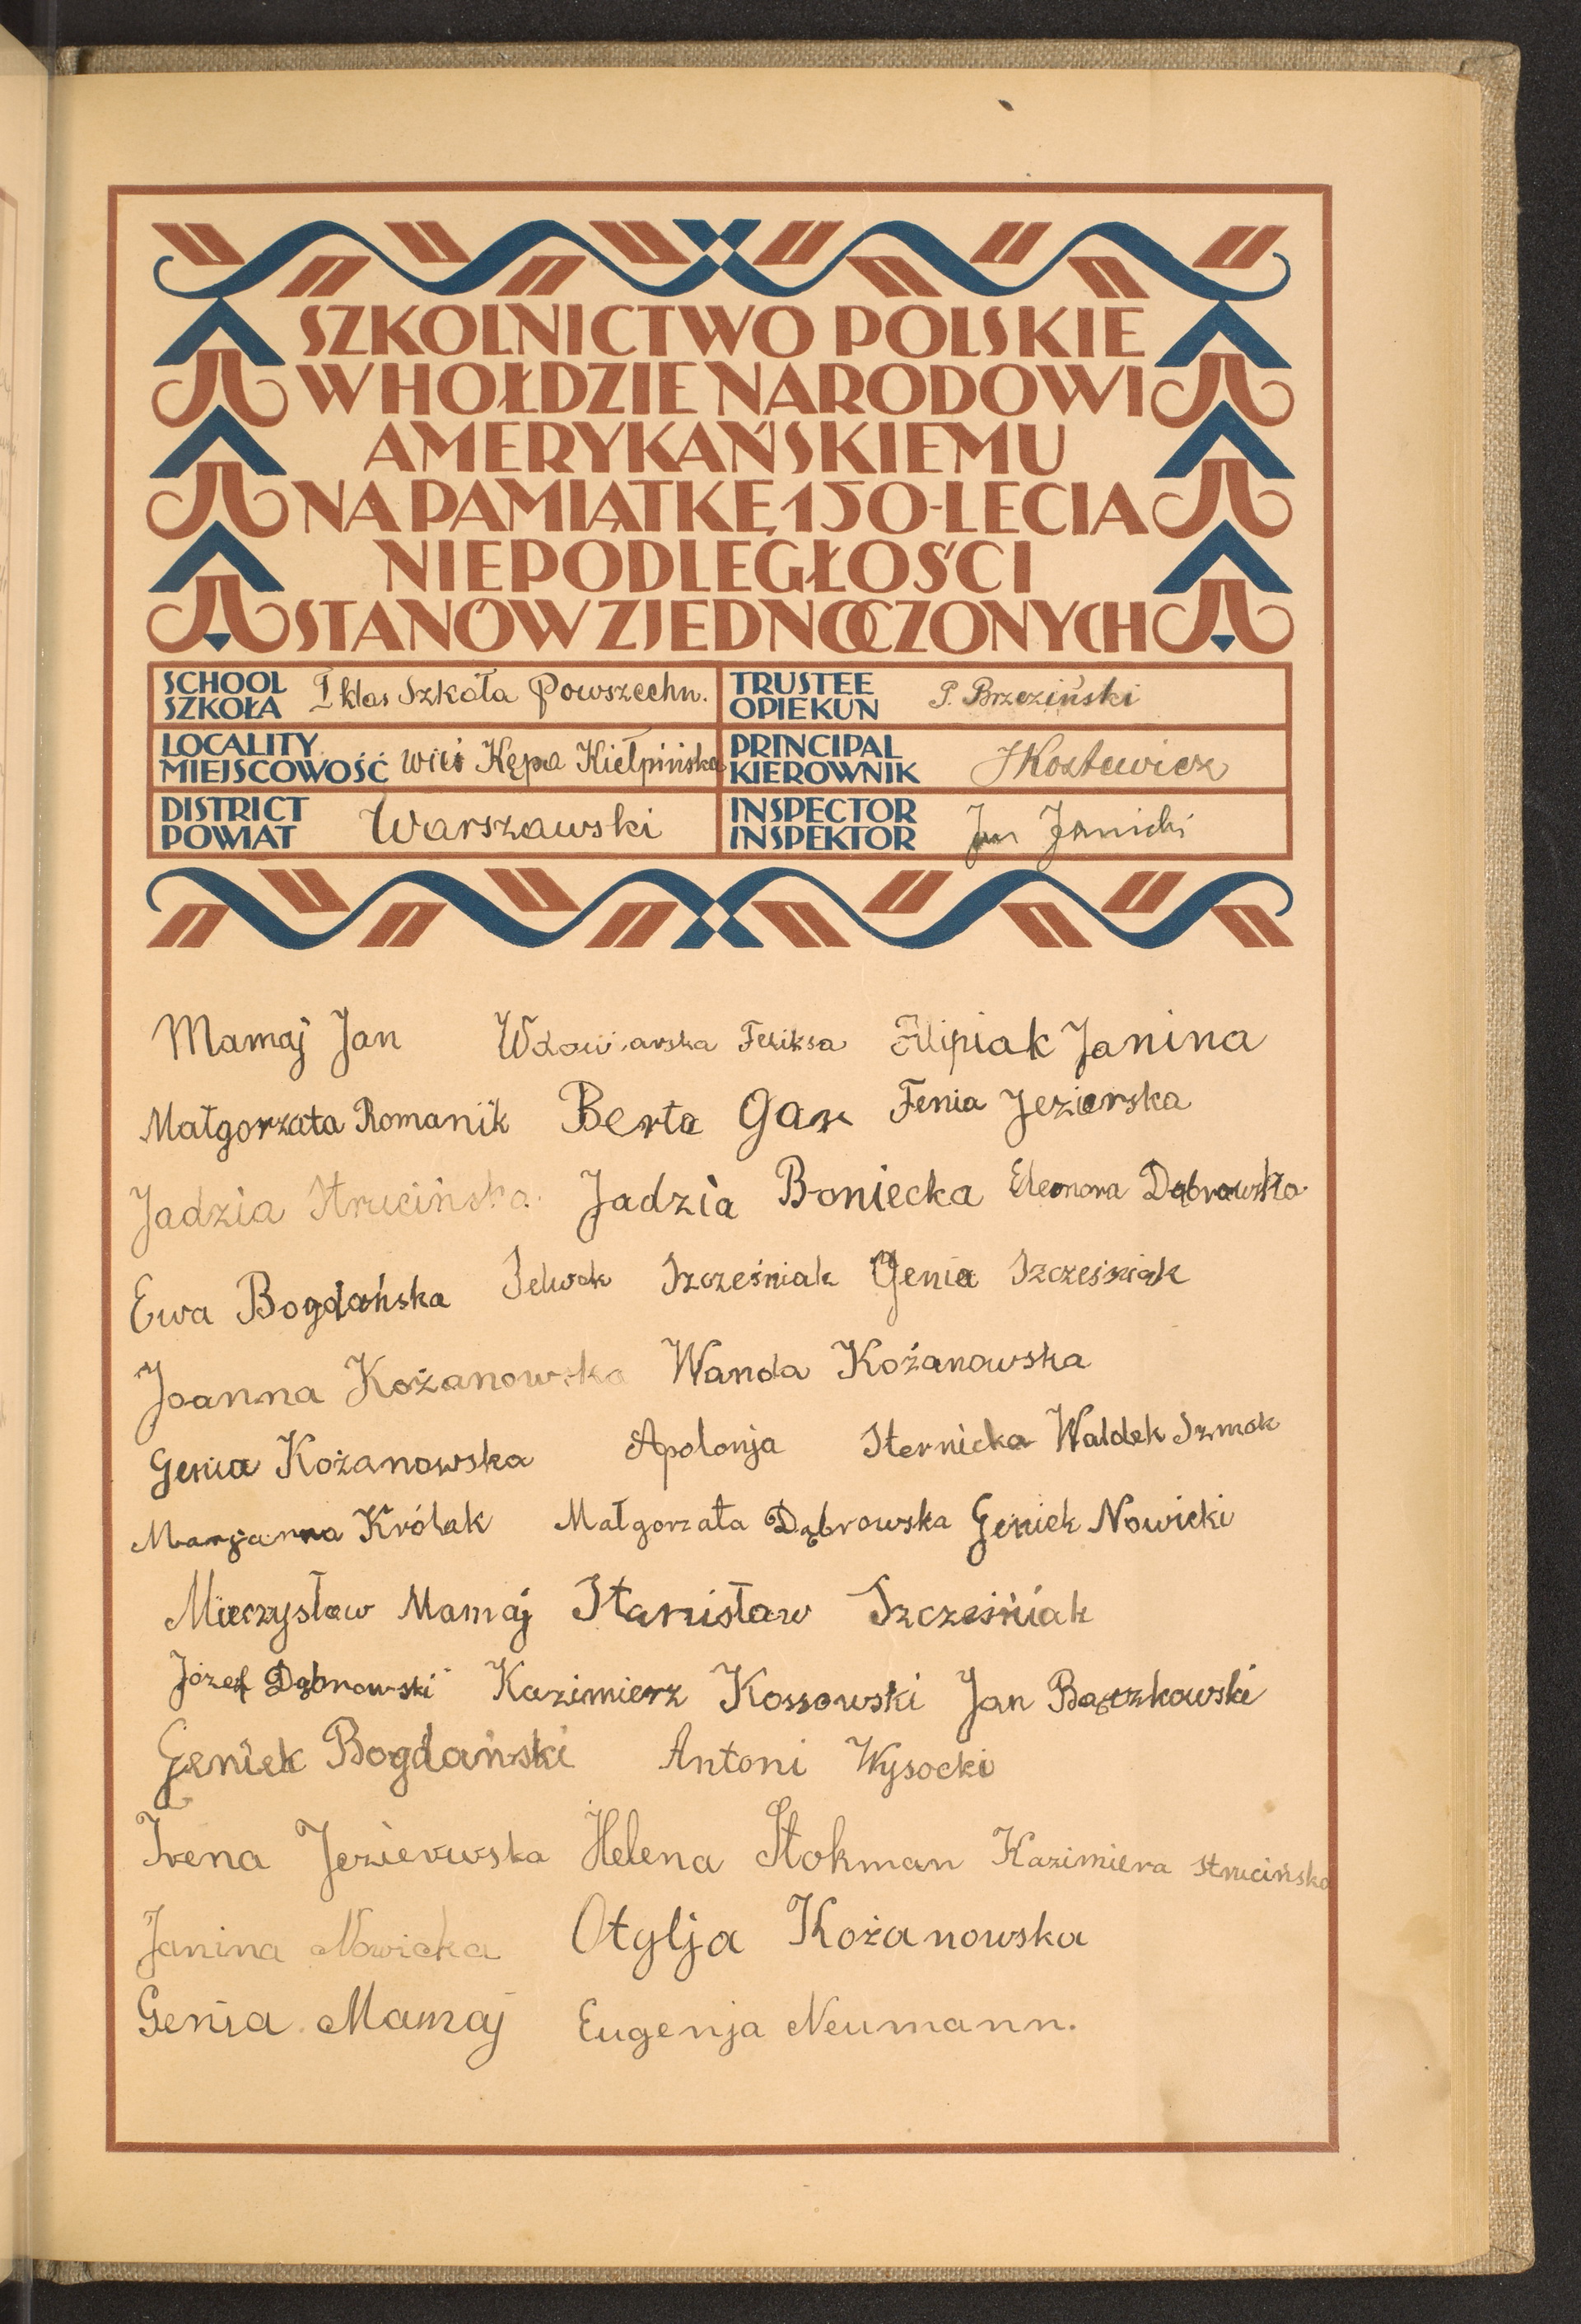 SZKOLNICTWO POLSKIE
W HOŁDZIE NARODOWI
AMERYKAŃSKIEMU
NA PAMIĄTKĘ 150-LECIA
NIEPODLEGŁOŚCI
STANÓW ZJEDNOCZONYCH
SCHOOL SZKOŁA I klas Szkoła Powszechn.
TRUSTEE OPIEKUN P. Brzeziński
LOCALITY MIEJSCOWOŚĆ wieś Kępa Kiełpińska
PRINCIPAL KIEROWNIK
DISTRICT POWIAT Warszawski
INSPECTOR INSPEKTOR Jan Janicki
Mamaj Jan Feliksa Filipiak Janina
Małgorzata Romanik Berta Gaz Fenia Jezierska
Jadzia Strucińska Jadzia Boniecka Eleonora Dąbrowska
Ewa Bogdańska Szcześniak Genia Szcześniak
Joanna Kożanowska Wanda Kożanowska
Genia Kożanowska Apolonja Sternicka Waldek Szmak
Marjanna Królak Małgorzata Dąbrowska Geniek Nowicki
Mieczysław Mamaj Stanisław Szcześniak
Józef Dąbrowski Kazimierz Kossowski Jan Bączkowski
Geniek Bogdański Antoni Wysocki
Irena Helena Stokman Kazimiera Strucińska
Janina Nowicka Otylja Kożanowska
Genia Mamaj Eugenja Neumann.